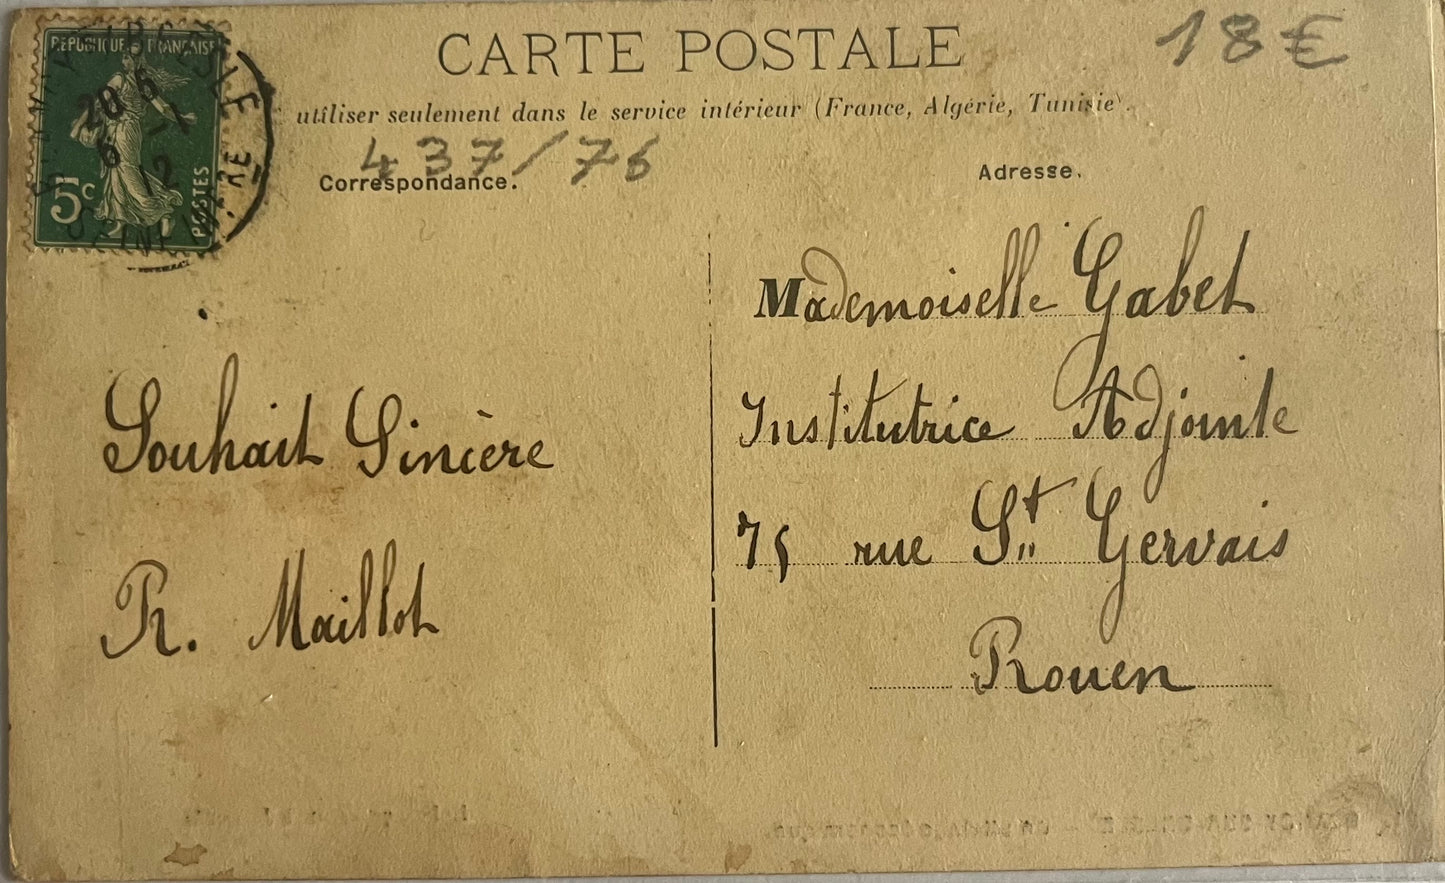 CARTE POSTALE
18 €
utiliser seulement dans le service intérieur (France, Algérie, Tunisie).
437/76
Correspondance.
Adresse.
REPUBLIQUE FRANÇAISE
5c
POSTES
20 6
6 -1
12
Mademoiselle Gabet
Institutrice Adjointe
75 rue St Gervais
Rouen
Souhait Sincère
R. Maillot